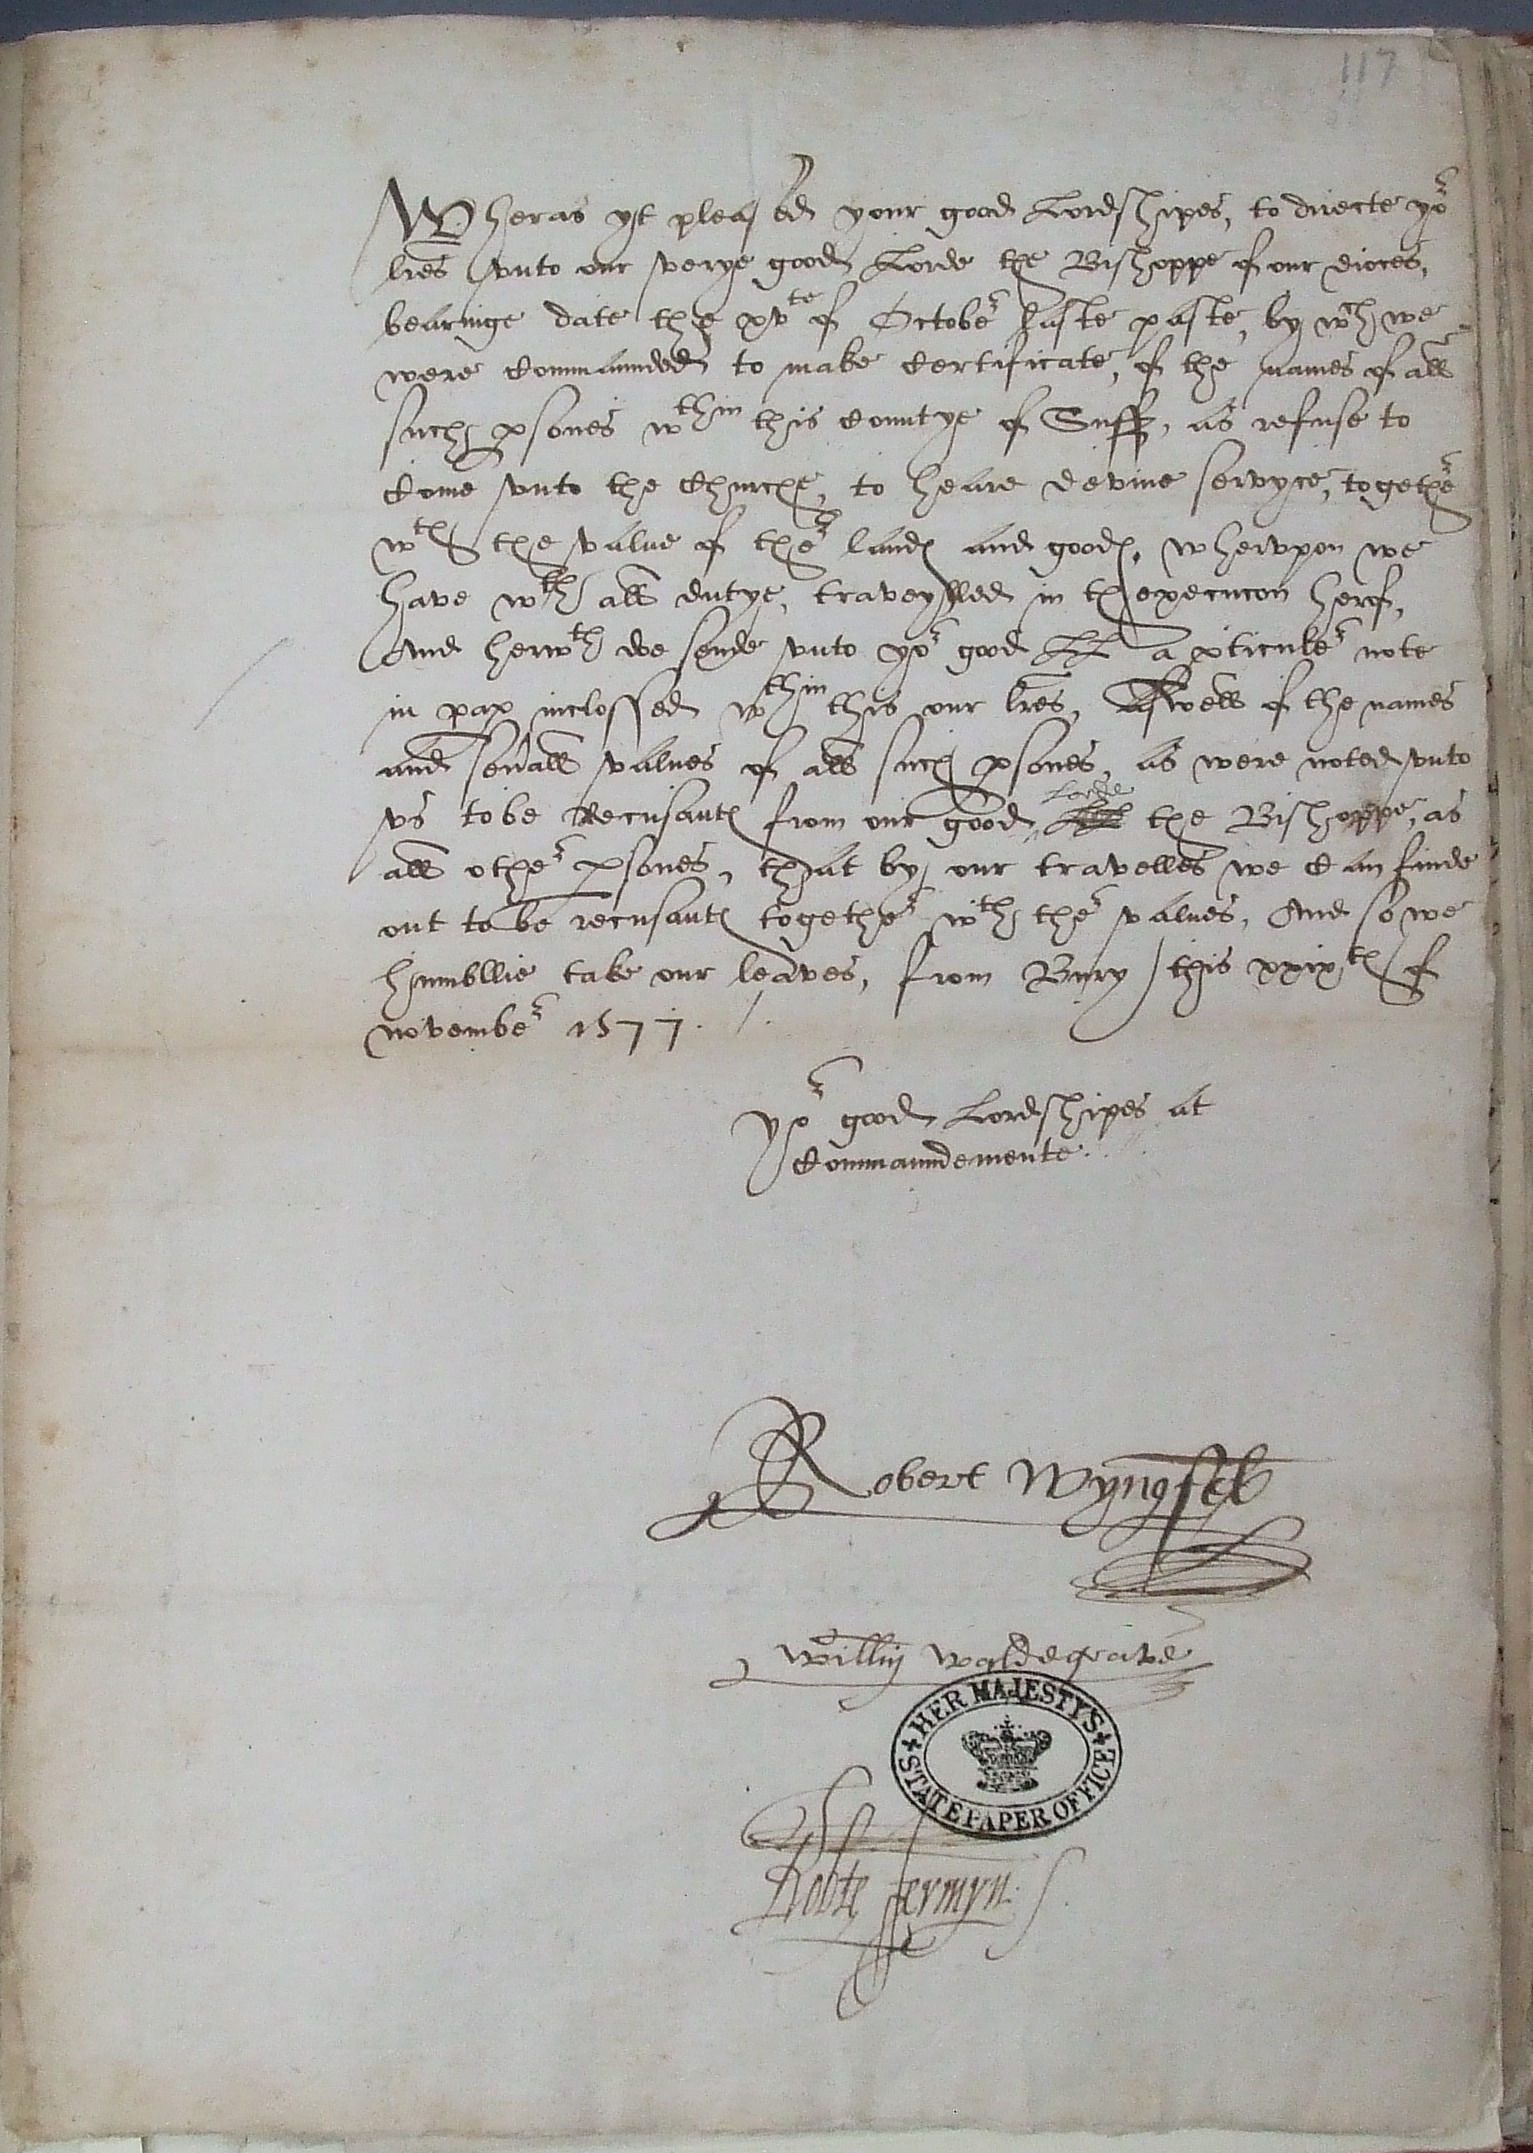 117
Wheras yt pleased your good Lordshipes, to directe yor
lres vnto our verye good Lorde the Bishoppe of our dioces,
bearinge date the xvte of October laste paste, by wch we
were commaunded to make certificate, of the names of all
suche psones wthin this countye of Suff, as refuse to
come vnto the churche, to heare devine servyce, together
wth the value of ther landes and goodes, whervpon we
have wth all dutye, traveylled in thexecucon herof,
And herwth doe sende vnto yor good LL a pticuler note
in pap inclossed wthin this our lres, Aswell of the names
and seuall values of all such psones, as were noted vnto
vs to be Recusantes from our good Lorde the Bishoppe, as
all other psones, that by our travelles we can finde
out to be recusantes together wth ther values, And so we
humbllie take our leaves, from Bury this xxixth of
november 1577.
yor good Lordshipes at
commaundemente.
Robert Wyngfeld
Willm Waldegrave
HER MAJESTYS STATE PAPER OFFICE
Robte Jermyn